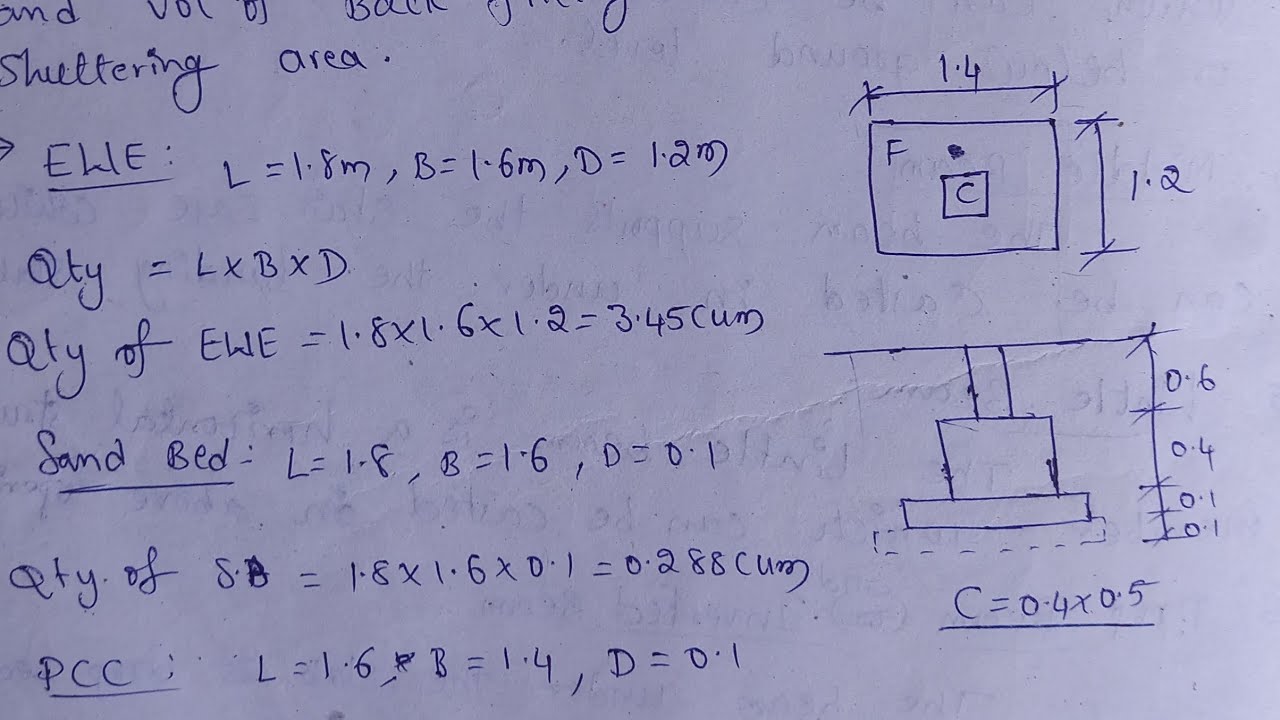 and Vol of Back
Shuttering area.
EWE: L = 1.8m, B = 1.6m, D = 1.2m
Qty = L x B x D
Qty of EWE = 1.8 x 1.6 x 1.2 = 3.45 Cum
Sand Bed: L = 1.8, B = 1.6, D = 0.1
Qty. of S.B = 1.8 x 1.6 x 0.1 = 0.288 Cum
PCC: L = 1.6, B = 1.4, D = 0.1
1.4
F
C
1.2
0.6
0.4
0.1
0.1
C = 0.4 x 0.5